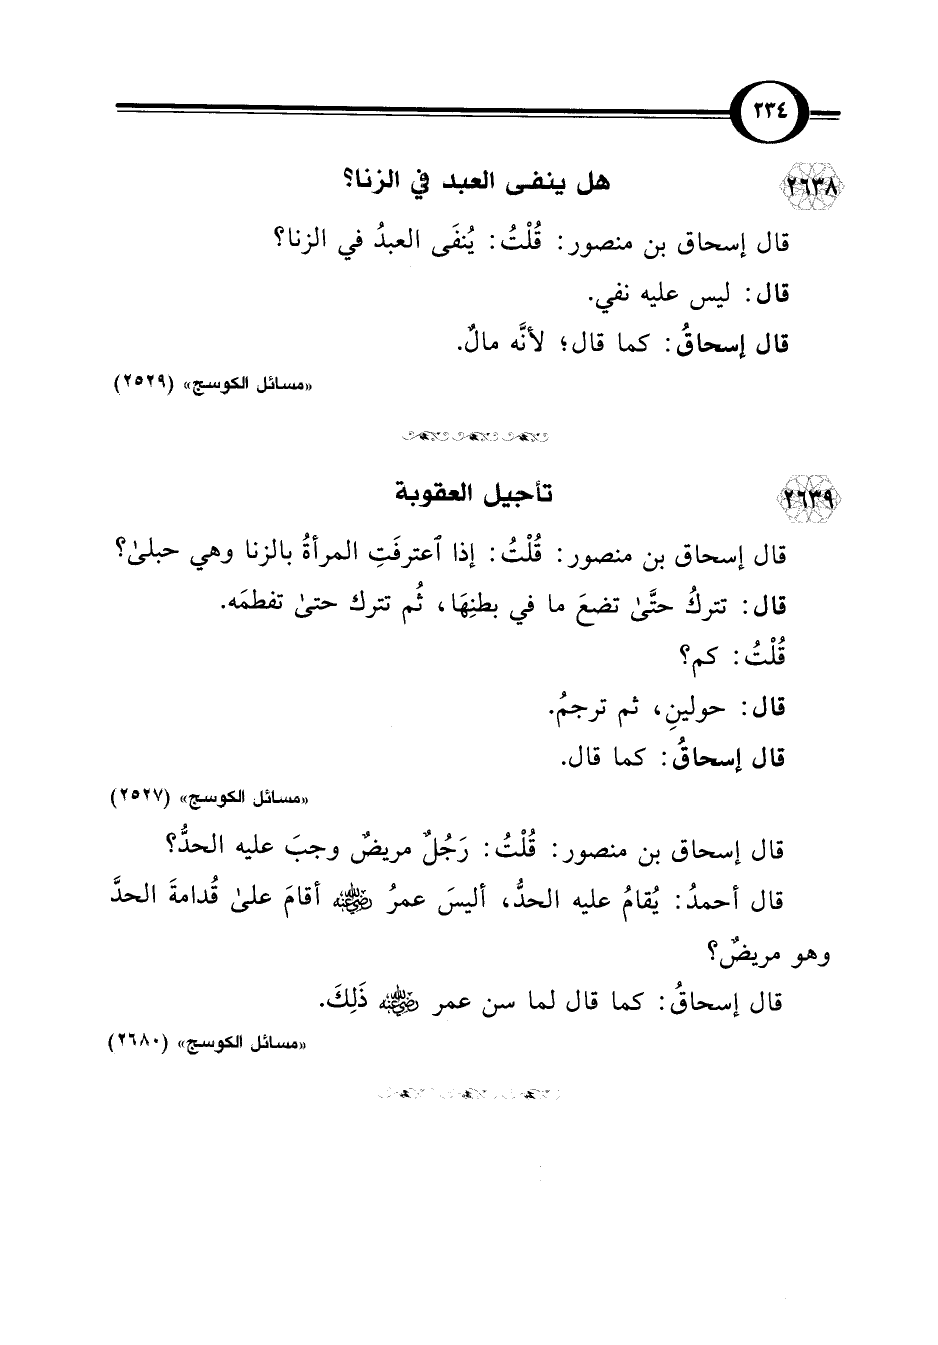 ٢٣٤
٢٦٣٨ هل ينفى العبد في الزنا؟
قال إسحاق بن منصور: قُلْتُ: يُنفَى العبدُ في الزنا؟
قال: ليس عليه نفي.
قال إسحاقُ: كما قال؛ لأنَّه مالٌ.
«مسائل الكوسج» (٢٥٢٩)
٢٦٣٩ تأجيل العقوبة
قال إسحاق بن منصور: قُلْتُ: إذا ٱعترفَتِ المرأةُ بالزنا وهي حبلىٰ؟
قال: تتركُ حتَّىٰ تضعَ ما في بطنِهَا، ثُم تترك حتىٰ تفطمَه.
قُلْتُ: كم؟
قال: حولينِ، ثم ترجمُ.
قال إسحاقُ: كما قال.
«مسائل الكوسج» (٢٥٢٧)
قال إسحاق بن منصور: قُلْتُ: رَجُلٌ مريضٌ وجبَ عليه الحدُّ؟
قال أحمدُ: يُقامُ عليه الحدُّ، أليسَ عمرُ رضي الله عنه أقامَ علىٰ قُدامةَ الحدَّ
وهو مريضٌ؟
قال إسحاقُ: كما قال لما سن عمر رضي الله عنه ذَلِكَ.
«مسائل الكوسج» (٢٦٨٠)